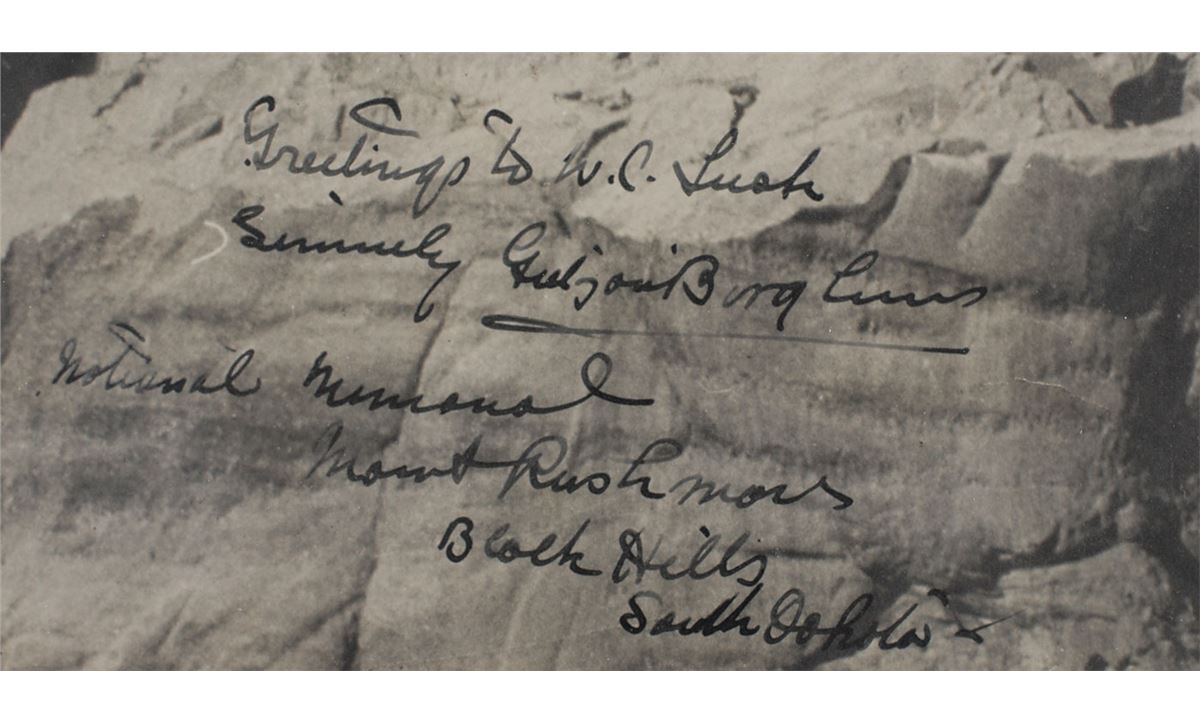 Greetings to W.C. Lusk
Sincerely Gutzon Borglum
National Memorial
Mount Rushmore
Black Hills
South Dakota